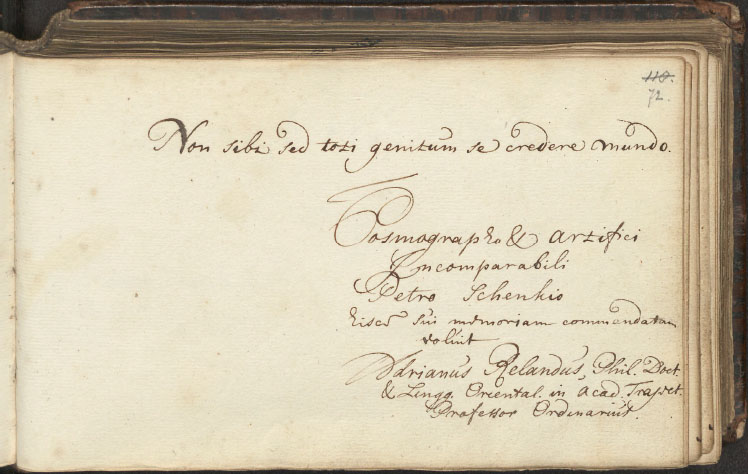 118.
72.
Non sibi sed toti genitum se credere mundo.
Cosmographo & artifici
Incomparabili
Petro Schenkio
hisce sui memoriam commendatam
voluit
Adrianus Relandus, Phil. Doct
& Lingg. Oriental. in Acad. Traject.
Professor Ordinarius.